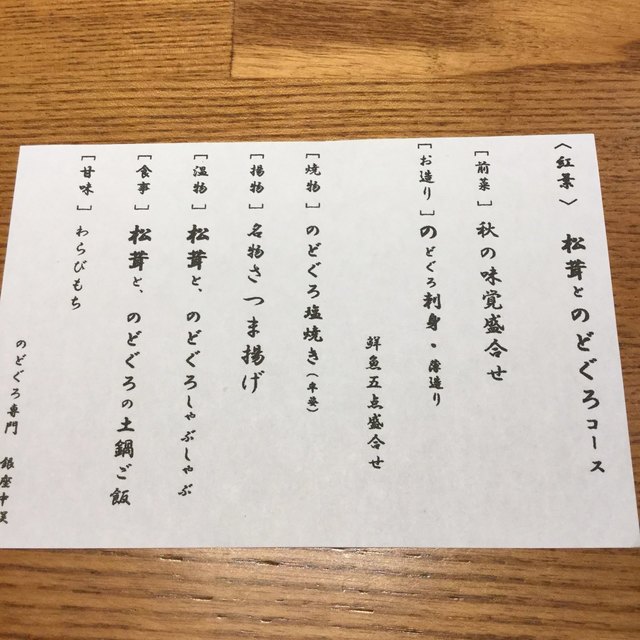 〈紅葉〉 松茸とのどぐろコース
［前菜］ 秋の味覚盛合せ
［お造り］ のどぐろ刺身・薄造り
鮮魚五点盛合せ
［焼物］ のどぐろ塩焼き（半姿）
［揚物］ 名物さつま揚げ
［温物］ 松茸と、のどぐろしゃぶしゃぶ
［食事］ 松茸と、のどぐろの土鍋ご飯
［甘味］ わらびもち
のどぐろ専門 銀座中俣